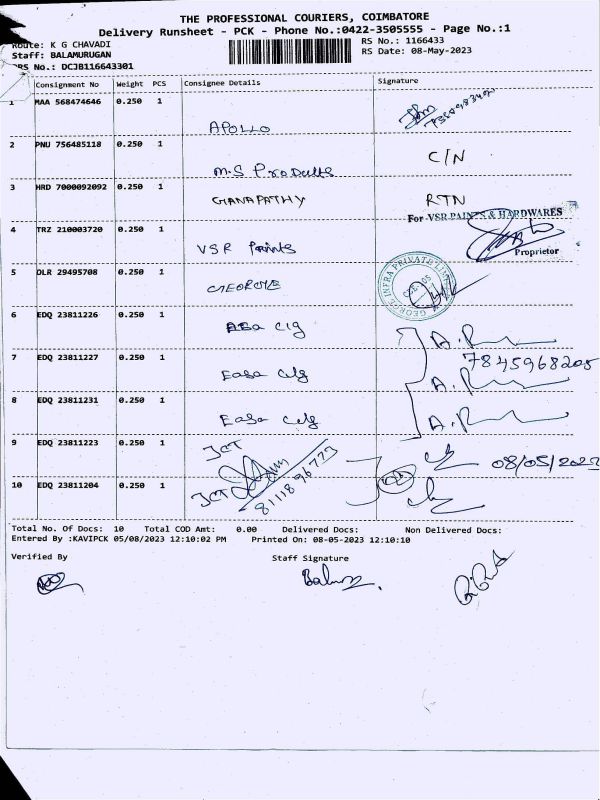 THE PROFESSIONAL COURIERS, COIMBATORE
Delivery Runsheet - PCK - Phone No.:0422-3505555 - Page No.:1
Route: K G CHAVADI
RS No.: 1166433
Staff: BALAMURUGAN
RS Date: 08-May-2023
DRS No.: DCJB116643301
Consignment No Weight PCS Consignee Details Signature
1 MAA 568474646 0.250 1
APOLLO
2 PNU 756485118 0.250 1 C/N
M.S Products
3 HRD 7000092092 0.250 1 GANAPATHY RTN
For VSR PAINTS & HARDWARES
4 TRZ 210003720 0.250 1
VSR Paints
Proprietor
5 OLR 29495708 0.250 1 GEORGE
GEORGE INFRA PRIVATE LIMITED
6 EDQ 23811226 0.250 1
7845968205
7 EDQ 23811227 0.250 1
8 EDQ 23811231 0.250 1
9 EDQ 23811223 0.250 1 JCT
08/05/2023
8111896773
10 EDQ 23811204 0.250 1 JCT
Total No. Of Docs: 10 Total COD Amt: 0.00 Delivered Docs: Non Delivered Docs:
Entered By :KAVIPCK 05/08/2023 12:10:02 PM Printed On: 08-05-2023 12:10:10
Verified By Staff Signature